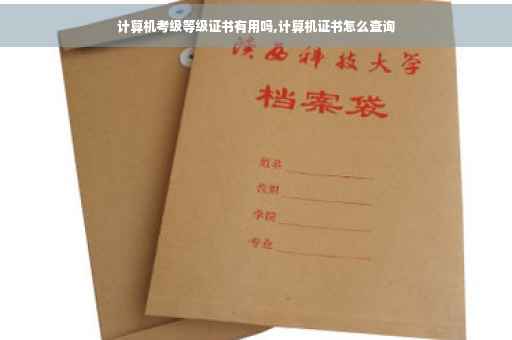 计算机考级等级证书有用吗,计算机证书怎么查询
陕西科技大学
档案袋
姓名
学院
专业